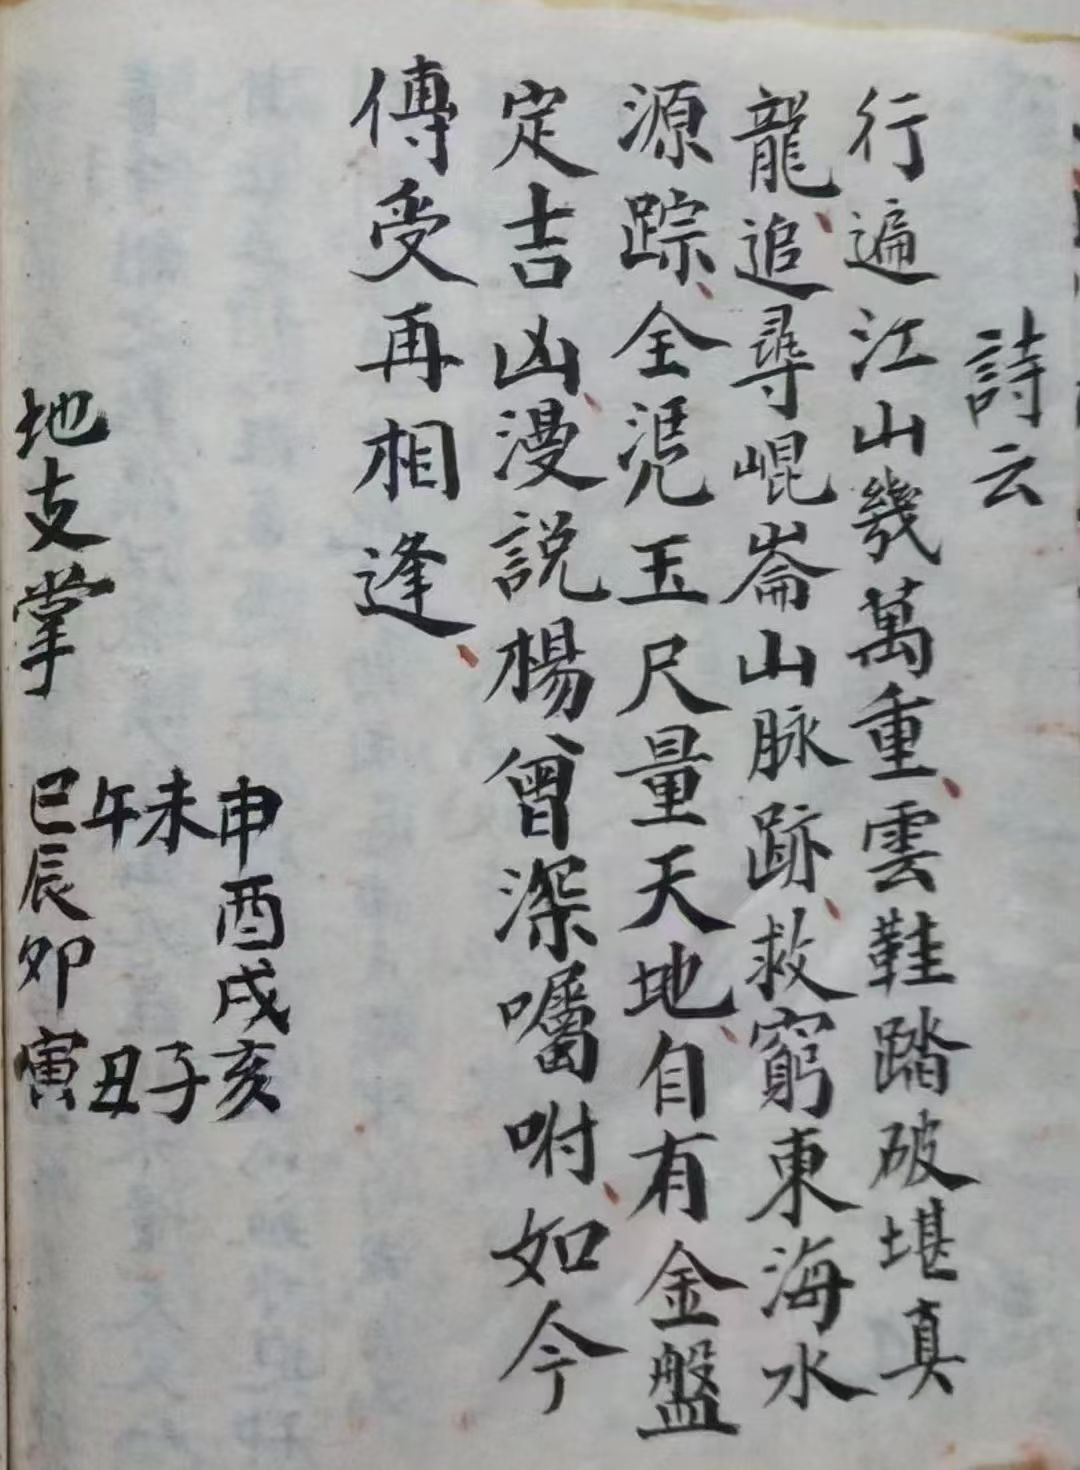 詩云
行遍江山幾萬重、雲鞋踏破堪真
龍、追尋崐崙山脉跡、救窮東海水
源踪、全凴玉尺量天地、自有金盤
定吉凶、漫説楊曾深囑咐、如今
傳受再相逢、
地支掌
申酉戌亥
未
子
午
丑
巳辰卯寅